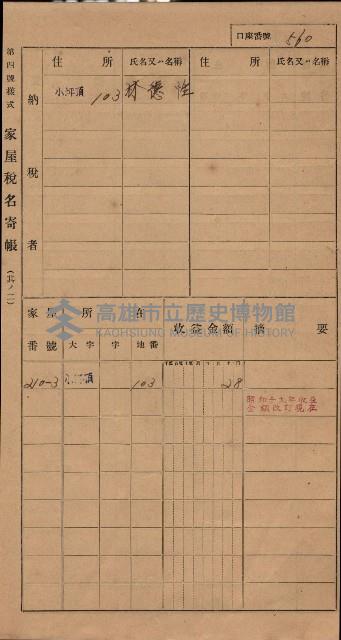 口座番號 560
第四號樣式 家屋稅名寄帳 (其ノ二)
住所 氏名又ハ名稱 住所 氏名又ハ名稱
納稅者
小坪頂 103 林德性
高雄市立歷史博物館
KAOHSIUNG MUSEUM OF HISTORY
家屋所在 收益金額 摘要
番號 大字 字 地番
210-3 小坪頂 103 28
昭和十九年收益
金額改訂現在